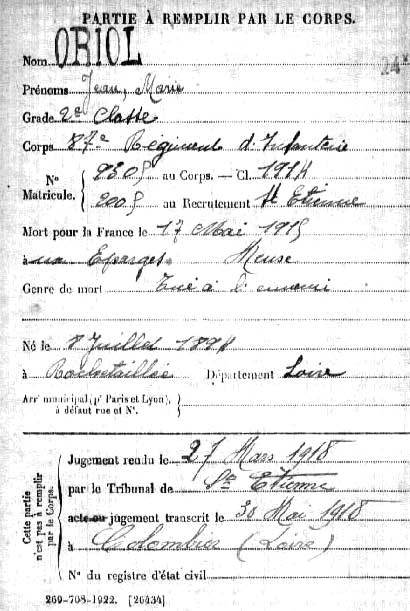 PARTIE À REMPLIR PAR LE CORPS.
Nom ORIOL
Prénoms Jean, Marie
Grade 2e Classe
Corps 87e Régiment d'Infanterie
N° Matricule. { 9305 au Corps. — Cl. 1914
2005 au Recrutement St Etienne
Mort pour la France le 17 Mai 1915
à aux Eparges Meuse
Genre de mort Tué à l'ennemi
Né le 8 Juillet 1894
à Rochetaillée Département Loire
Arr<sup>t</sup> municipal (p<sup>r</sup> Paris et Lyon), à défaut rue et N°. }
Cette partie n'est pas à remplir par le Corps.
Jugement rendu le 27 Mars 1918
par le Tribunal de St Etienne
acte ou jugement transcrit le 30 Mai 1918
à Colombier (Loire)
N° du registre d'état civil
269-708-1922. [26434]